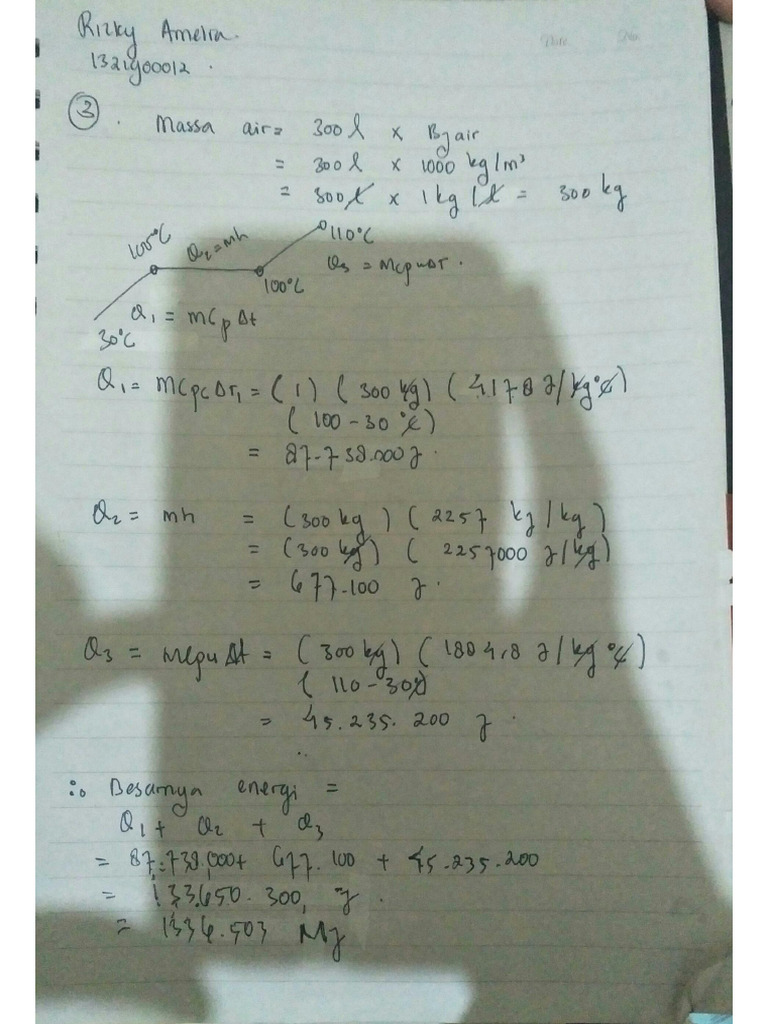 Rizky Amelra.
1321900012.
Date No
③. Massa air = 300 l x Bj air
= 300 l x 1000 kg/m³
= 300 l x 1 kg / l = 300 kg
100°C Q2 = mh 110°C
100°C Q3 = Mcpu ΔT.
Q1 = mCp Δt
30°C
Q1 = MCpc ΔT1 = (1) (300 kg) (4178 J/kg°C)
(100 - 30 °C)
= 87.738.000 J.
Q2 = mh = (300 kg) (2257 kJ/kg)
= (300 kg) (2257000 J/kg)
= 677.100 J.
Q3 = mcpu Δt = (300 kg) (1804,8 J/kg °C)
(110 - 30)
= 45.235.200 J.
∴ Besarnya energi =
Q1 + Q2 + Q3
= 87.738.000 + 677.100 + 45.235.200
= 133.650.300, J.
= 1336.503 MJ